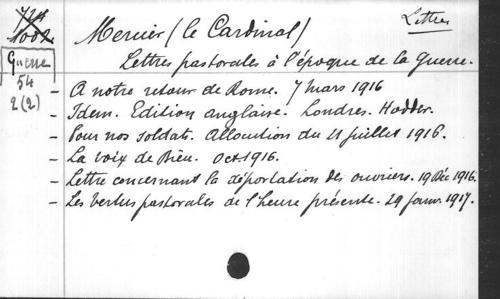 Mercier (le Cardinal)
Lettres
Lettres pastorales à l'époque de la Guerre.
Guerre
54
2(2)
- A notre retour de Rome. 7 Mars 1916
- Idem. Edition anglaise. Londres. Hodder.
- Pour nos soldats. Allocution du 21 juillet 1916.
- La voix de Dieu. Oct 1916.
- Lettre concernant la déportation des ouvriers. 19 Déc 1916.
- Les vertus pastorales de l'heure présente. 29 janv. 1917.